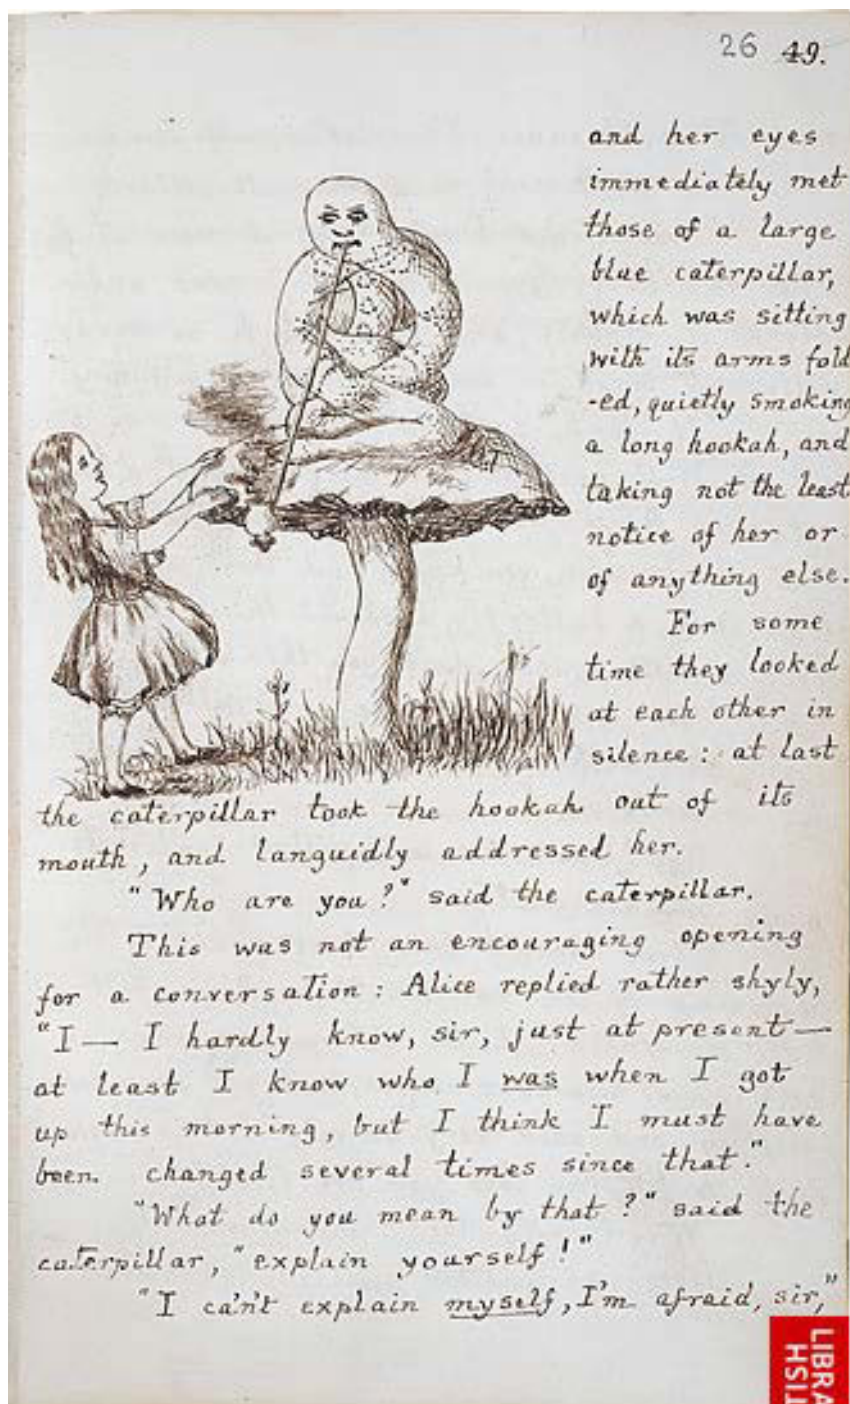 26 49.
and her eyes
immediately met
those of a large
blue caterpillar,
which was sitting
with its arms fold
-ed, quietly smoking
a long hookah, and
taking not the least
notice of her or
of anything else.
For some
time they looked
at each other in
silence: at last
the caterpillar took the hookah out of its
mouth, and languidly addressed her.
"Who are you?" said the caterpillar.
This was not an encouraging opening
for a conversation: Alice replied rather shyly,
"I — I hardly know, sir, just at present —
at least I know who I was when I got
up this morning, but I think I must have
been changed several times since that."
"What do you mean by that?" said the
caterpillar, "explain yourself!"
"I ca'n't explain myself, I'm afraid, sir,"
LIBRA
TISH